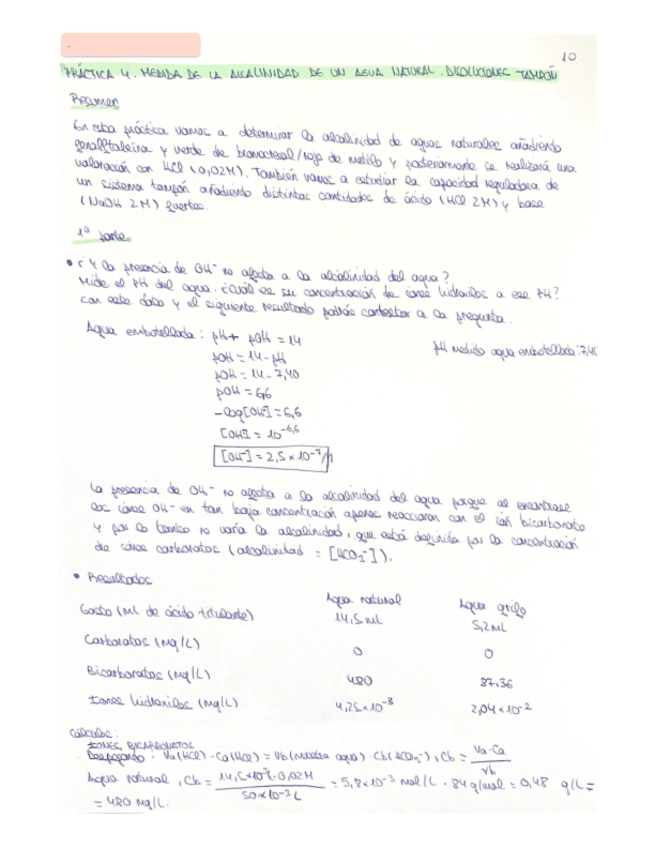 10
PRÁCTICA 4. MEDIDA DE LA ALCALINIDAD DE UN AGUA NATURAL. DISOLUCIONES TAMPÓN
Resumen
En esta práctica vamos a determinar la alcalinidad de aguas naturales añadiendo
fenolftaleína y verde de bromocresol/rojo de metilo y posteriormente se realizará una
valoración con HCl (0,02M). También vamos a estudiar la capacidad reguladora de
un sistema tampón añadiendo distintas cantidades de ácido (HCl 2M) y base
(NaOH 2M) fuertes.
1ª parte
• ¿Y la presencia de OH⁻ no afecta a la alcalinidad del agua?
Mide el pH del agua. ¿Cuál es su concentración de iones hidroxilos a ese pH?
Con este dato y el siguiente resultado podrás contestar a la pregunta.
Agua embotellada: pH + pOH = 14
pH medido agua embotellada: 7,40
pOH = 14 - pH
pOH = 14 - 7,40
pOH = 6,6
-log[OH⁻] = 6,6
[OH⁻] = 10^-6,6
[OH⁻] = 2,5 x 10^-7 M
La presencia de OH⁻ no afecta a la alcalinidad del agua porque al encontrarse
los iones OH⁻ en tan baja concentración apenas reaccionan con el ión bicarbonato
y por lo tanto no varía la alcalinidad, que está definida por la concentración
de iones carbonatos (alcalinidad = [HCO₃⁻]).
• Resultados
Agua natural Agua grifo
Gasto (ml de ácido titulante) 14,5 ml 5,2 ml
Carbonatos (mg/L) 0 0
Bicarbonatos (mg/L) 480 87.36
Iones hidroxilos (mg/L) 4,25x10^-3 2,04x10^-2
Cálculos:
IONES BICARBONATOS
Despejando: Va(HCl) · Ca(HCl) = Vb(muestra agua) · Cb(HCO₃⁻), Cb = Va·Ca / Vb
Agua natural, Cb = 14,5x10^-3 L · 0,02M / 50x10^-3 L = 5,8x10^-3 mol/L · 84 g/mol = 0,48 g/L =
= 480 mg/L.